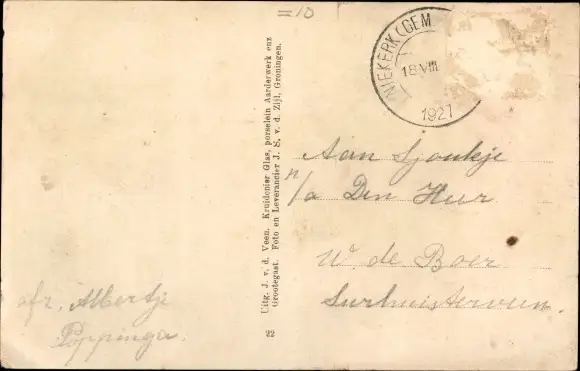 =10
NIEKERK (GEM.
18 VIII
1927
Aan Sjoukje
p/a Den Heer
W. de Boer
Surhuisterveen.
afz. Albertje
Poppinga.
Uitg. J. v. d. Veen. Kruidenier Glas, porselein Aardewerk enz
Grootegast. Foto en Leverancier J. S. v. d. Zijl, Groningen.
22